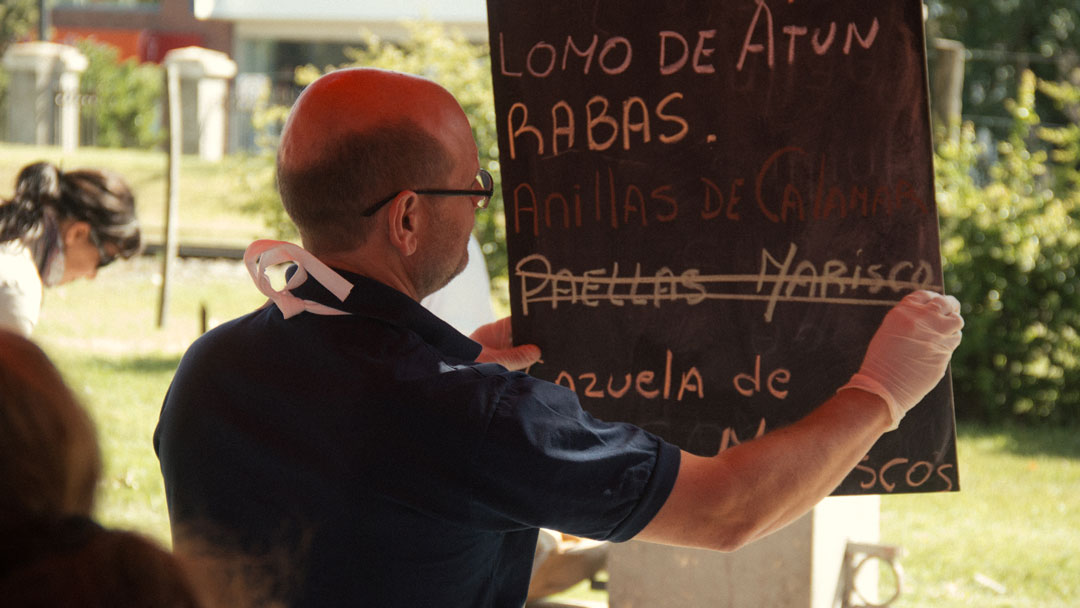 LOMO DE ATUN
RABAS.
Anillas DE CALAMARES
PAELLAS MARISCO
Cazuela de